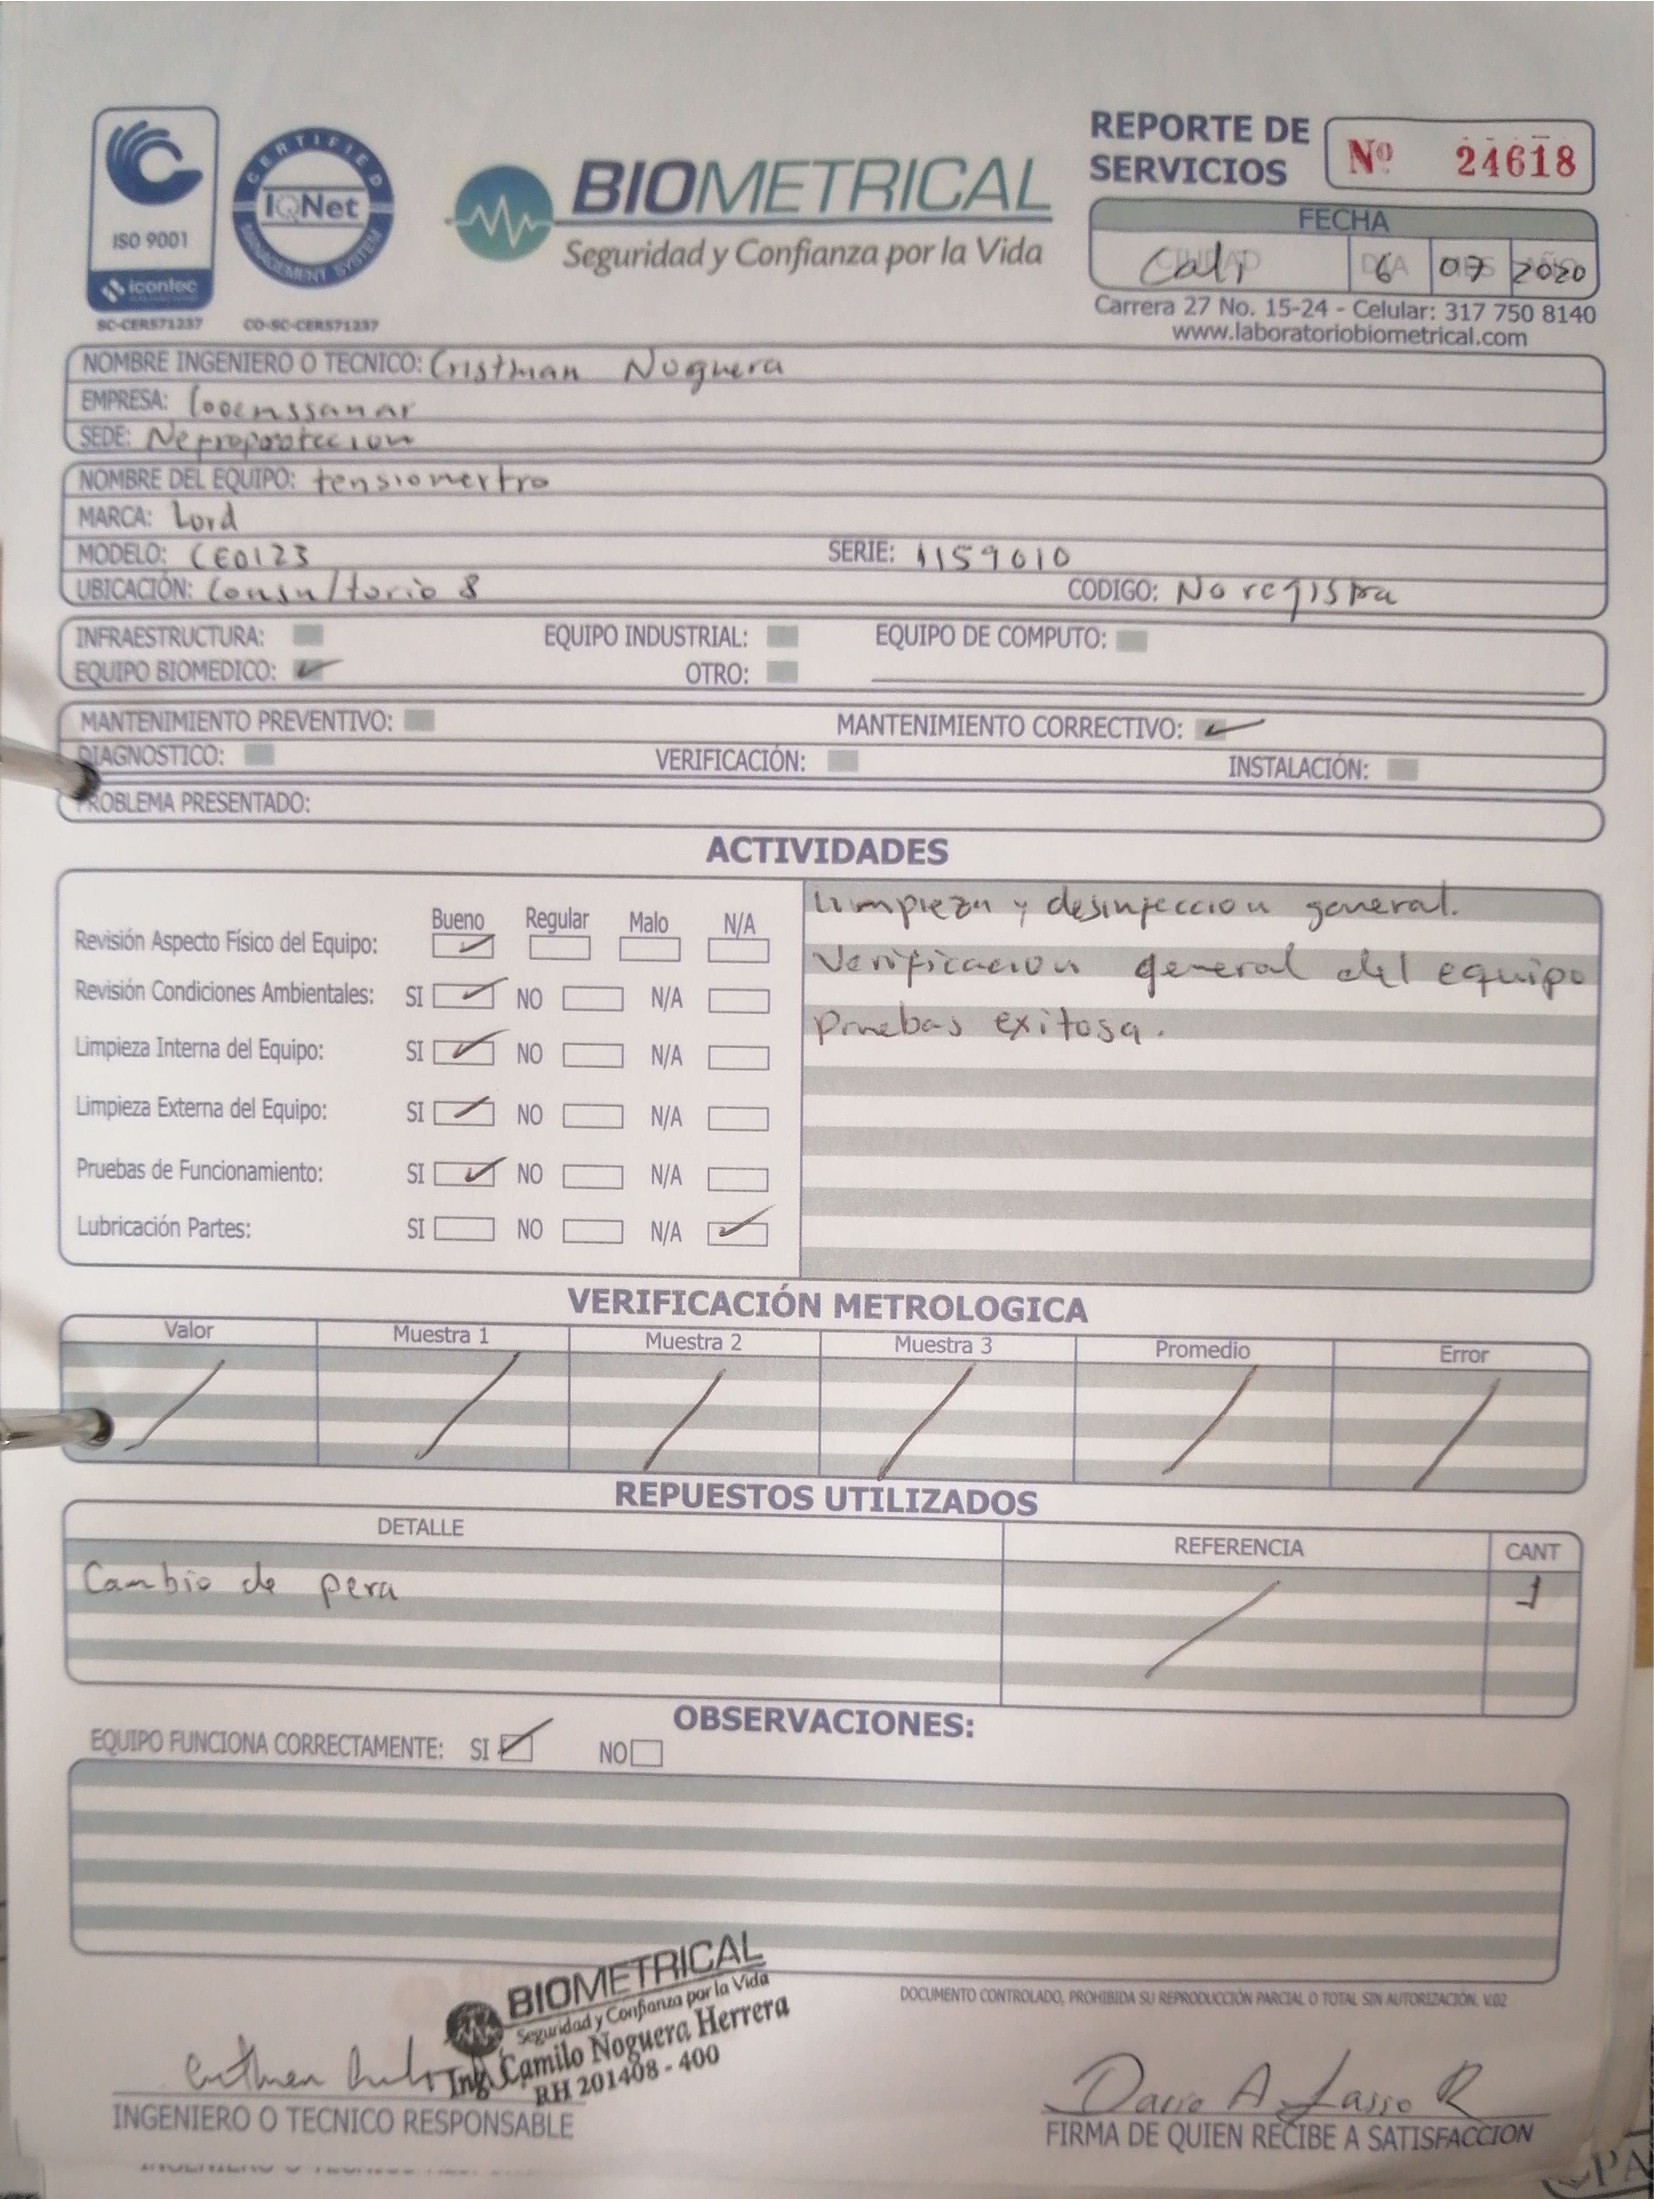 ISO 9001
icontec
SC-CER571237
CERTIFIED
IQNet
MANAGEMENT SYSTEM
CO-SC-CER571237
BIOMETRICAL
Seguridad y Confianza por la Vida
REPORTE DE
SERVICIOS
Nº 24618
FECHA
Cali 6 07 2020
Carrera 27 No. 15-24 - Celular: 317 750 8140
www.laboratoriobiometrical.com
NOMBRE INGENIERO O TECNICO: Cristhian Noguera
EMPRESA: Cooemssanar
SEDE: Nefroproteccion
NOMBRE DEL EQUIPO: tensiometro
MARCA: Lord
MODELO: CE0123 SERIE: 1159010
UBICACIÓN: Consultorio 8 CODIGO: No registra
INFRAESTRUCTURA: EQUIPO INDUSTRIAL: EQUIPO DE COMPUTO:
EQUIPO BIOMEDICO: OTRO:
MANTENIMIENTO PREVENTIVO: MANTENIMIENTO CORRECTIVO:
DIAGNOSTICO: VERIFICACIÓN: INSTALACIÓN:
PROBLEMA PRESENTADO:
ACTIVIDADES
Bueno Regular Malo N/A
Revisión Aspecto Físico del Equipo:
Revisión Condiciones Ambientales: SI NO N/A
Limpieza Interna del Equipo: SI NO N/A
Limpieza Externa del Equipo: SI NO N/A
Pruebas de Funcionamiento: SI NO N/A
Lubricación Partes: SI NO N/A
Limpieza y desinfeccion general.
Verificacion general del equipo
Pruebas exitosa.
VERIFICACIÓN METROLOGICA
Valor Muestra 1 Muestra 2 Muestra 3 Promedio Error
REPUESTOS UTILIZADOS
DETALLE REFERENCIA CANT
Cambio de pera 1
OBSERVACIONES:
EQUIPO FUNCIONA CORRECTAMENTE: SI NO
DOCUMENTO CONTROLADO, PROHIBIDA SU REPRODUCCIÓN PARCIAL O TOTAL SIN AUTORIZACIÓN. V.02
BIOMETRICAL
Seguridad y Confianza por la Vida
Ing. Camilo Noguera Herrera
RH 201408 - 400
INGENIERO O TECNICO RESPONSABLE
Dario A Lasso R
FIRMA DE QUIEN RECIBE A SATISFACCION